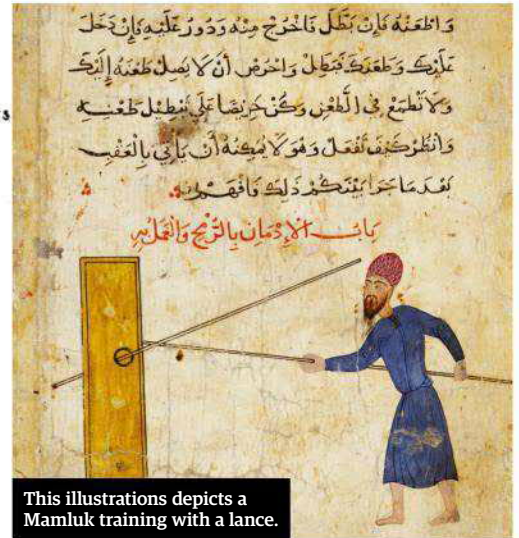 وَاطْعَنْهُ فَإِنْ بَطَّلَ فَاخْرُجْ مِنْهُ وَدُورْ عَلَيْهِ فَإِنْ دَخَلَ
عَلَيْكَ وَطَعَنَكَ فَبَطِّلْ وَاحْرَصْ أَنْ لَا يَصِلَ طَعْنُهُ إِلَيْكَ
وَلَا تَطْمَعْ فِي الطَّعْنِ وَكُنْ حَرِيصًا عَلَى تَبْطِيلِ طَعْنِهِ
وَانْظُرْ كَيْفَ تَفْعَلُ وَهُوَ لَا يُمْكِنُهُ أَنْ يَأْتِيَ بِالْعَقِبِ
بَعْدَ مَا جَرَا بَيْنَكُمْ ذَلِكَ فَافْهَمْ
بَابُ الْإِدْمَانِ بِالرُّمْحِ وَالْعَمَلِ بِهِ
This illustrations depicts a
Mamluk training with a lance.